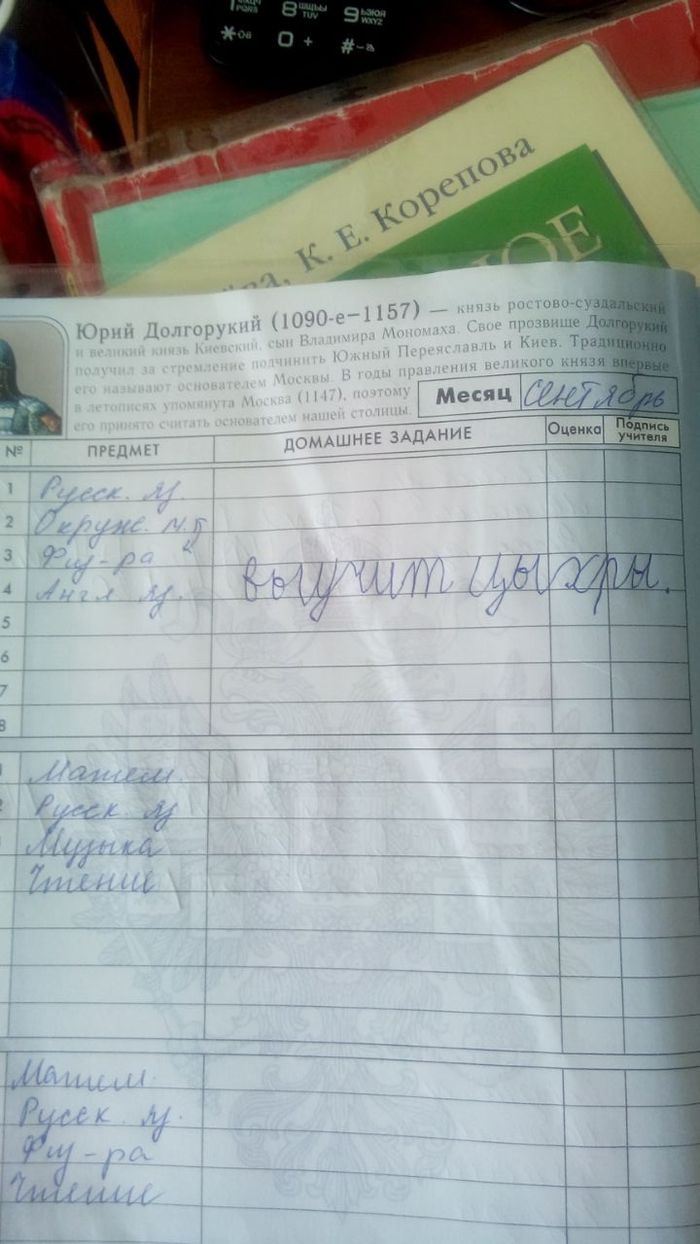 PQRS 8 ШЩЪЫ TUV 9 ЬЭЮЯ WXYZ
* 0 + #
К. Е. Корепова
Юрий Долгорукий (1090-е–1157) — князь ростово-суздальский
и великий князь Киевский, сын Владимира Мономаха. Свое прозвище Долгорукий
получил за стремление подчинить Южный Переяславль и Киев. Традиционно
его называют основателем Москвы. В годы правления великого князя впервые
в летописях упомянута Москва (1147), поэтому
его принято считать основателем нашей столицы.
Месяц Сентябрь
№ ПРЕДМЕТ ДОМАШНЕЕ ЗАДАНИЕ Оценка Подпись учителя
1 Русск. яз.
2 Окруж. м.
3 Физ-ра
4 Англ яз. выучит цыхры.
5
6
7
8
Матем.
Русск. яз
Музыка
Чтение
Матем.
Русск. яз.
Физ-ра
Чтение